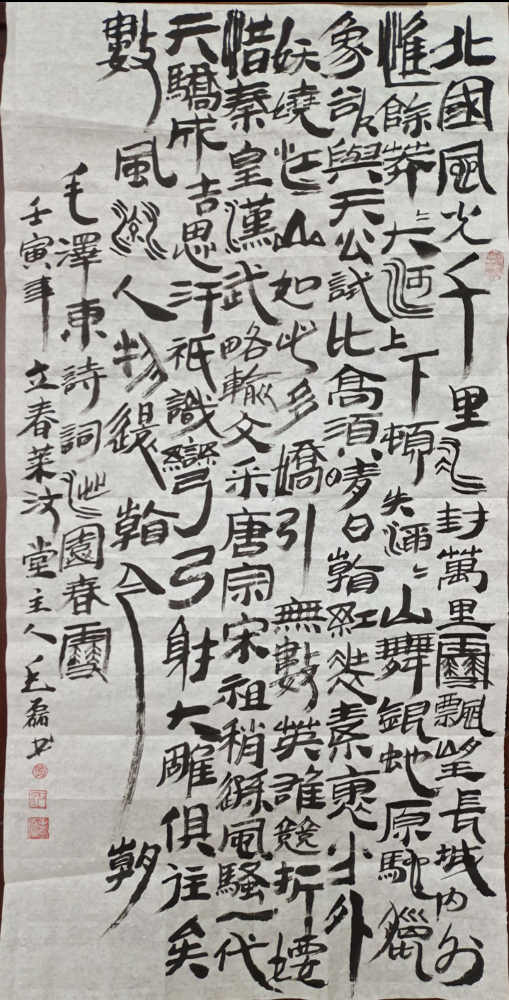 北國風光千里冰封萬里雪飄望長城内外
惟餘莽〻大河上下頓失滔〻山舞銀蛇原馳蠟
象欲與天公試比高須晴日看紅裝素裹分外
妖嬈江山如此多嬌引無數英雄競折腰
惜秦皇漢武略輸文采唐宗宋祖稍遜風騷一代
天驕成吉思汗祇識彎弓射大雕俱往矣
數風流人物還看今朝
毛澤東詩詞沁園春雪
壬寅年立春萊汶堂主人毛磊书